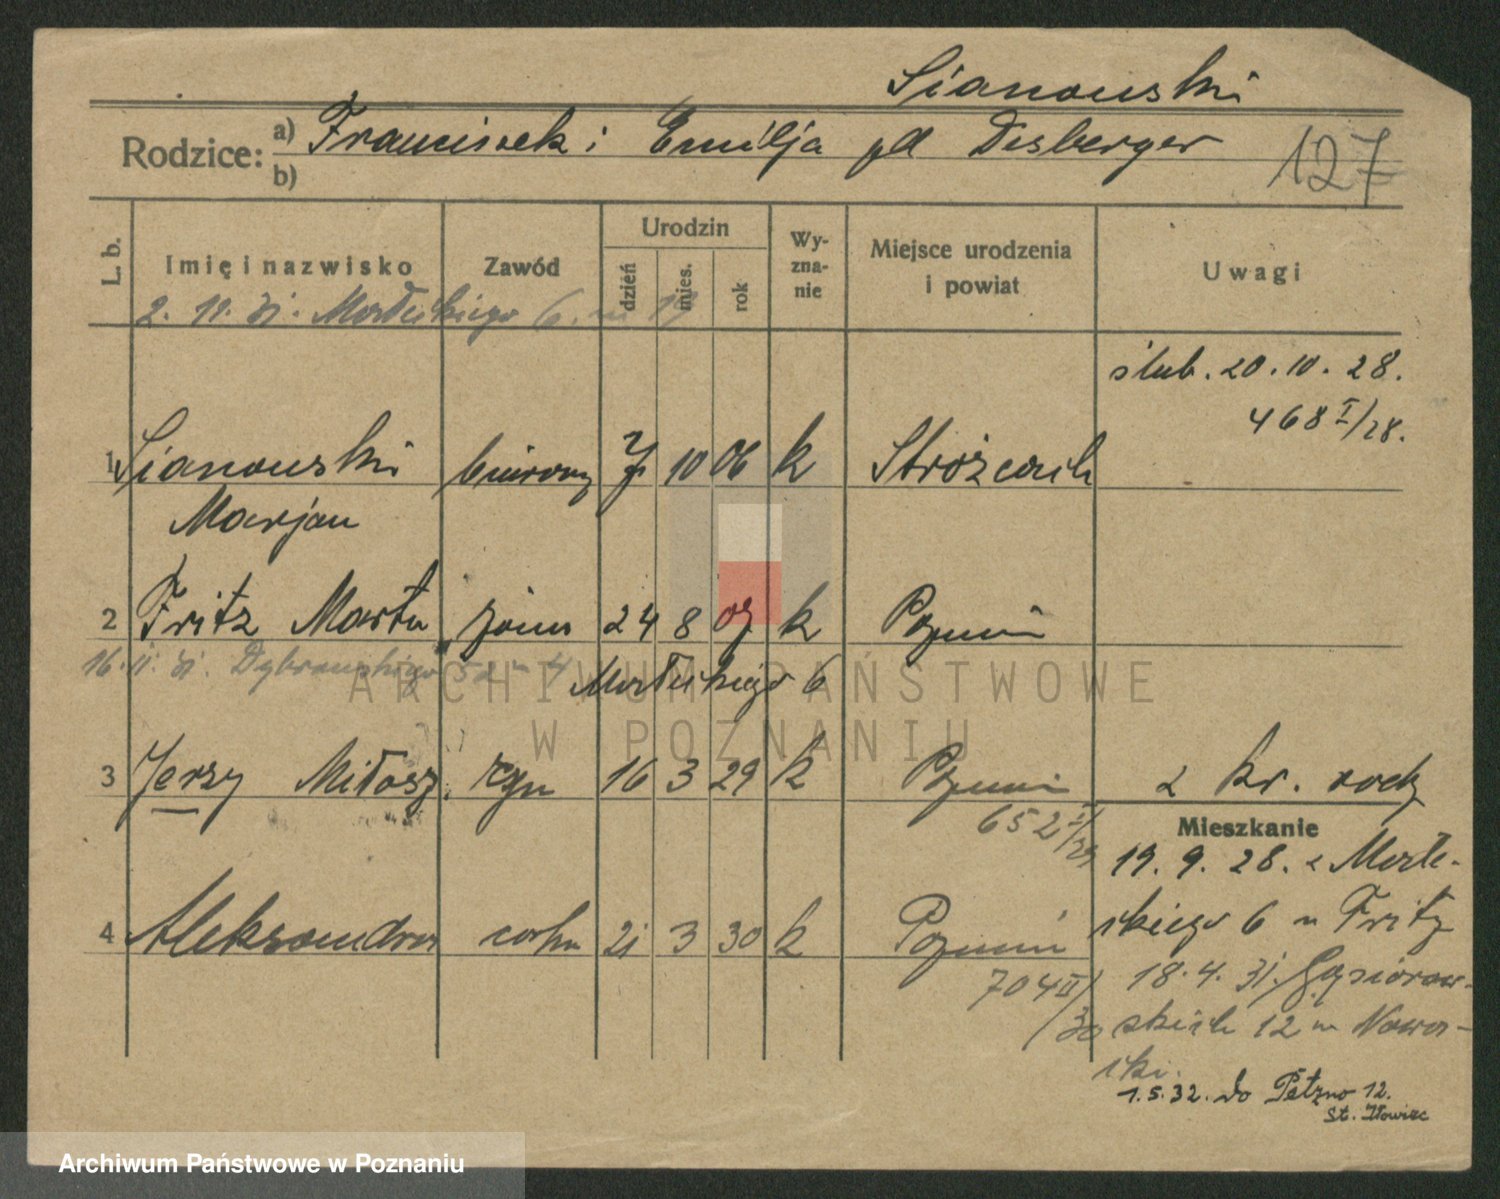 Sianowski
Rodzice: a) Franciszek i Emilja pd Desberger
b)
127
L. b. Imię i nazwisko Zawód Urodzin dzień mies. rok Wyznanie Miejsce urodzenia i powiat Uwagi
2. 11. 31. 6. m 19
ślub. 20. 10. 28.
468 I/28.
1 Sianowski biurowy 7 10 06 k Stróżach
Marjan
2 Fritz Marta żona 24 8 k Poznań
16. 11. 31. Dąbrowskiego 4
6
3 Jerzy Miłosz syn 16 3 29 k Poznań 2 kr.
652 I/29
Mieszkanie
19. 9. 28.
skiego 6 u Fritz
4 Aleksandra córka 21 3 30 k Poznań
704 II/30
18. 4. 31. Gąsiorow-
skich 12 m Nowo-
ski.
1. 5. 32. do 12.
St. Iłowiec
ARCHIWUM PAŃSTWOWE
W POZNANIU
Archiwum Państwowe w Poznaniu